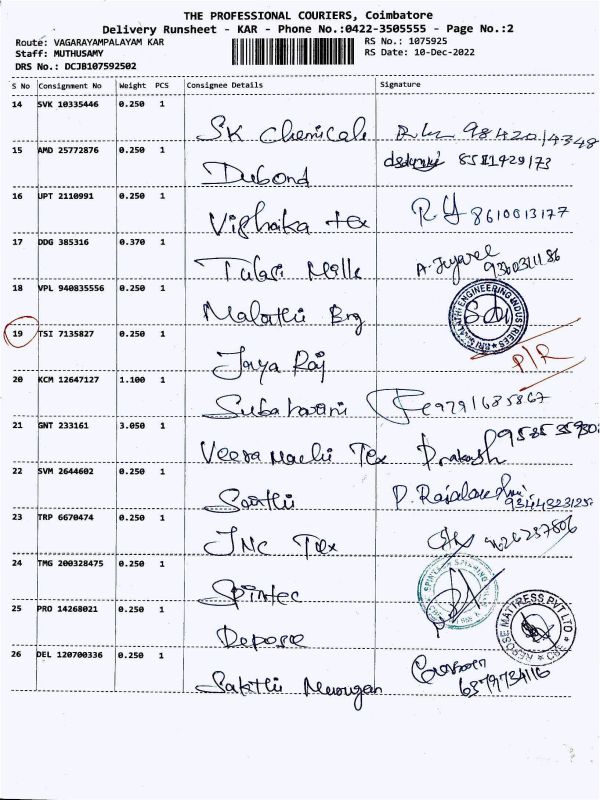 THE PROFESSIONAL COURIERS, Coimbatore
Delivery Runsheet - KAR - Phone No.:0422-3505555 - Page No.:2
Route: VAGARAYAMPALAYAM KAR
RS No.: 1075925
Staff: MUTHUSAMY
RS Date: 10-Dec-2022
DRS No.: DCJB107592502
S No Consignment No Weight PCS Consignee Details Signature
14 SVK 10335446 0.250 1
SK Chemicals
15 AMD 25772876 0.250 1
Dubond
16 UPT 2110991 0.250 1
Vighaika tex RY 8610013177
17 DDG 385316 0.370 1
Tulasi Mills
18 VPL 940835556 0.250 1
Malathi Brg
19 TSI 7135827 0.250 1
P/R
Jaya Raj
20 KCM 12647127 1.100 1
21 GNT 233161 3.050 1
Tex Prakash
22 SVM 2644602 0.250 1
23 TRP 6670474 0.250 1
JNC Tex
24 TMG 200328475 0.250 1
Spintec
25 PRO 14268021 0.250 1
MATTRESS PVT LTD
CBE
26 DEL 120700336 0.250 1
Sakthi Murugan 6379734116